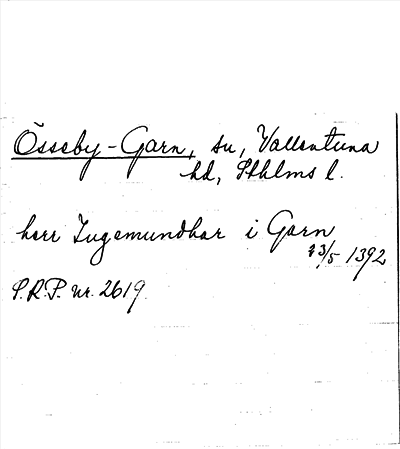 Össeby-Garn, sn, Vallentuna
hd, Sthlms l.
herr Ingemundhar i Garn
23/5 1392
S.R.P. nr. 2619.